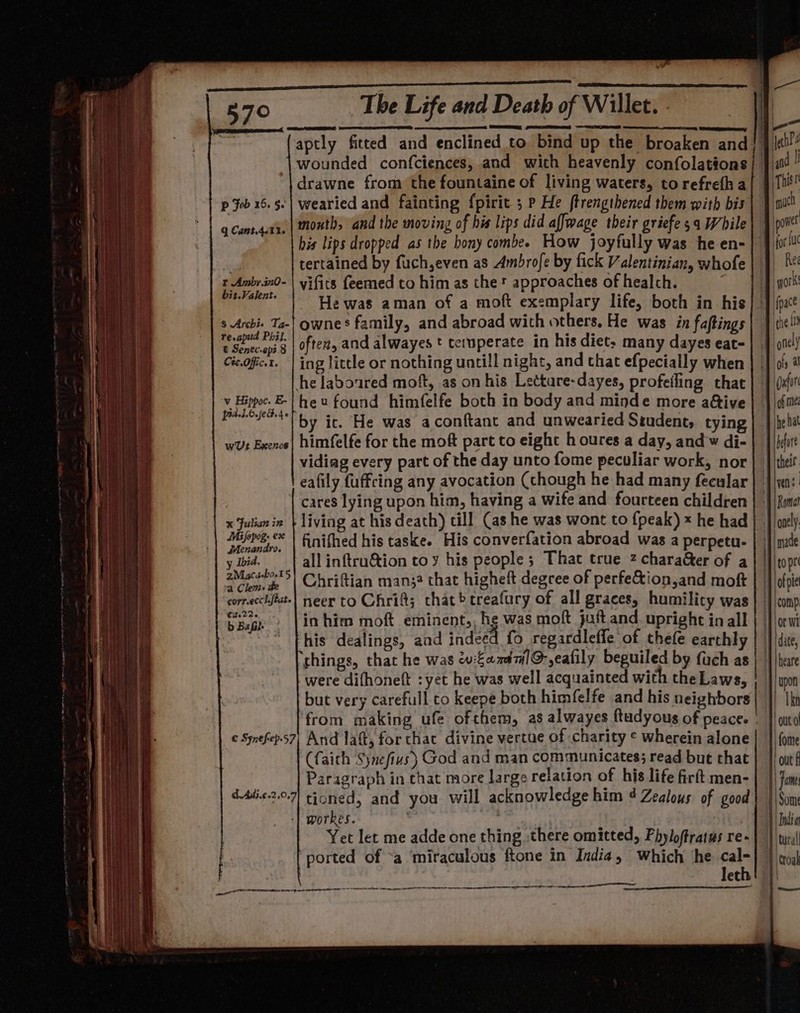 570 The Life and Death of Willet.
aptly fitted and enclined to bind up the broaken and
wounded conſciences, and with heavenly conſolations
drawne from the fountaine of living waters, to refreſh a
p Job 16. 5. wearied and fainting ſpirit ; p He ſtrengthened them with his
q Cant.4.11. mouth, and the moving of his lips did aſſwage their griefe ; q While
his lips dropped as the hony combe. How joyfully was he en-
tertained by ſuch, even as Ambroſe by ſick Valentinian, whoſe
r Ambr.in O- viſits ſeemed to him as the r approaches of health.
bit.Valent. He was a man of a moſt exemplary life, both in his
s Archi. Ta- owne s family, and abroad with others. He was in faſtings
re.apud Phil. often, and alwayes t temperate in his diet, many dayes eat-
t Senec.epi 8
Cic.Offic.1. ing little or nothing untill night, and that eſpecially when
he laboured moſt, as on his Lecture-dayes, profeſſing that
v Hippoc. E- he v found himſelfe both in body and minde more active
pid.l.6.ſect.4. by it. He was a conſtant and unwearied Student, tying
w Ut Exenos himſelfe for the moſt part to eight houres a day, and w di-
viding every part of the day unto ſome peculiar work, nor
eaſily ſuffring any avocation (though he had many ſecular
cares lying upon him, having a wife and fourteen children
x Julian in living at his death) till (as he was wont to ſpeak) x he had
Miſopog. ex finiſhed his taske. His converſation abroad was a perpetu-
Menandro.
y Ibid. all inſtruction to y his people ; That true z character of a
z Maca.ho.15 Chriſtian man ; a that higheſt degree of perfection, and moſt
a Clem. de
corr.eccl.ſtat. neer to Chriſt; that b treaſury of all graces, humility was
ca.22. in him moſt eminent, he was moſt juſt and upright in all
b Baſil. his dealings, and indeed ſo regardleſſe of theſe earthly
things, that he was , eaſily beguiled by ſuch as
were diſhoneſt : yet he was well acquainted with the Laws,
but very carefull to keepe both himſelfe and his neighbors
from making uſe of them, as alwayes ſtudyous of peace.
c Syneſ.ep.57 And laſt, for that divine vertue of charity c wherein alone
(ſaith Syneſius) God and man communicates; read but that
Paragraph in that more large relation of his life firſt men-
d Adi.c.2.0.7 tioned, and you will acknowledge him d Zealous of good
workes.
Yet let me adde one thing there omitted, Phyloſtratus re-
ported of a miraculous ſtone in India, which he cal-
leth